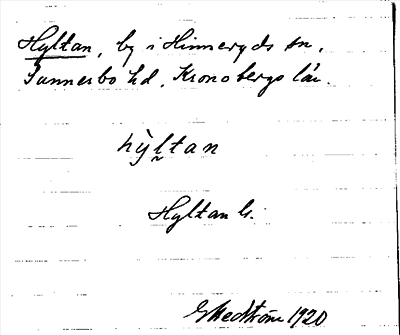 Hyltan, by i Hinneryds sn,
Sunnerbo hd, Kronobergs län.
hỳl̰tan
Hyltan G.
GHedström 1920